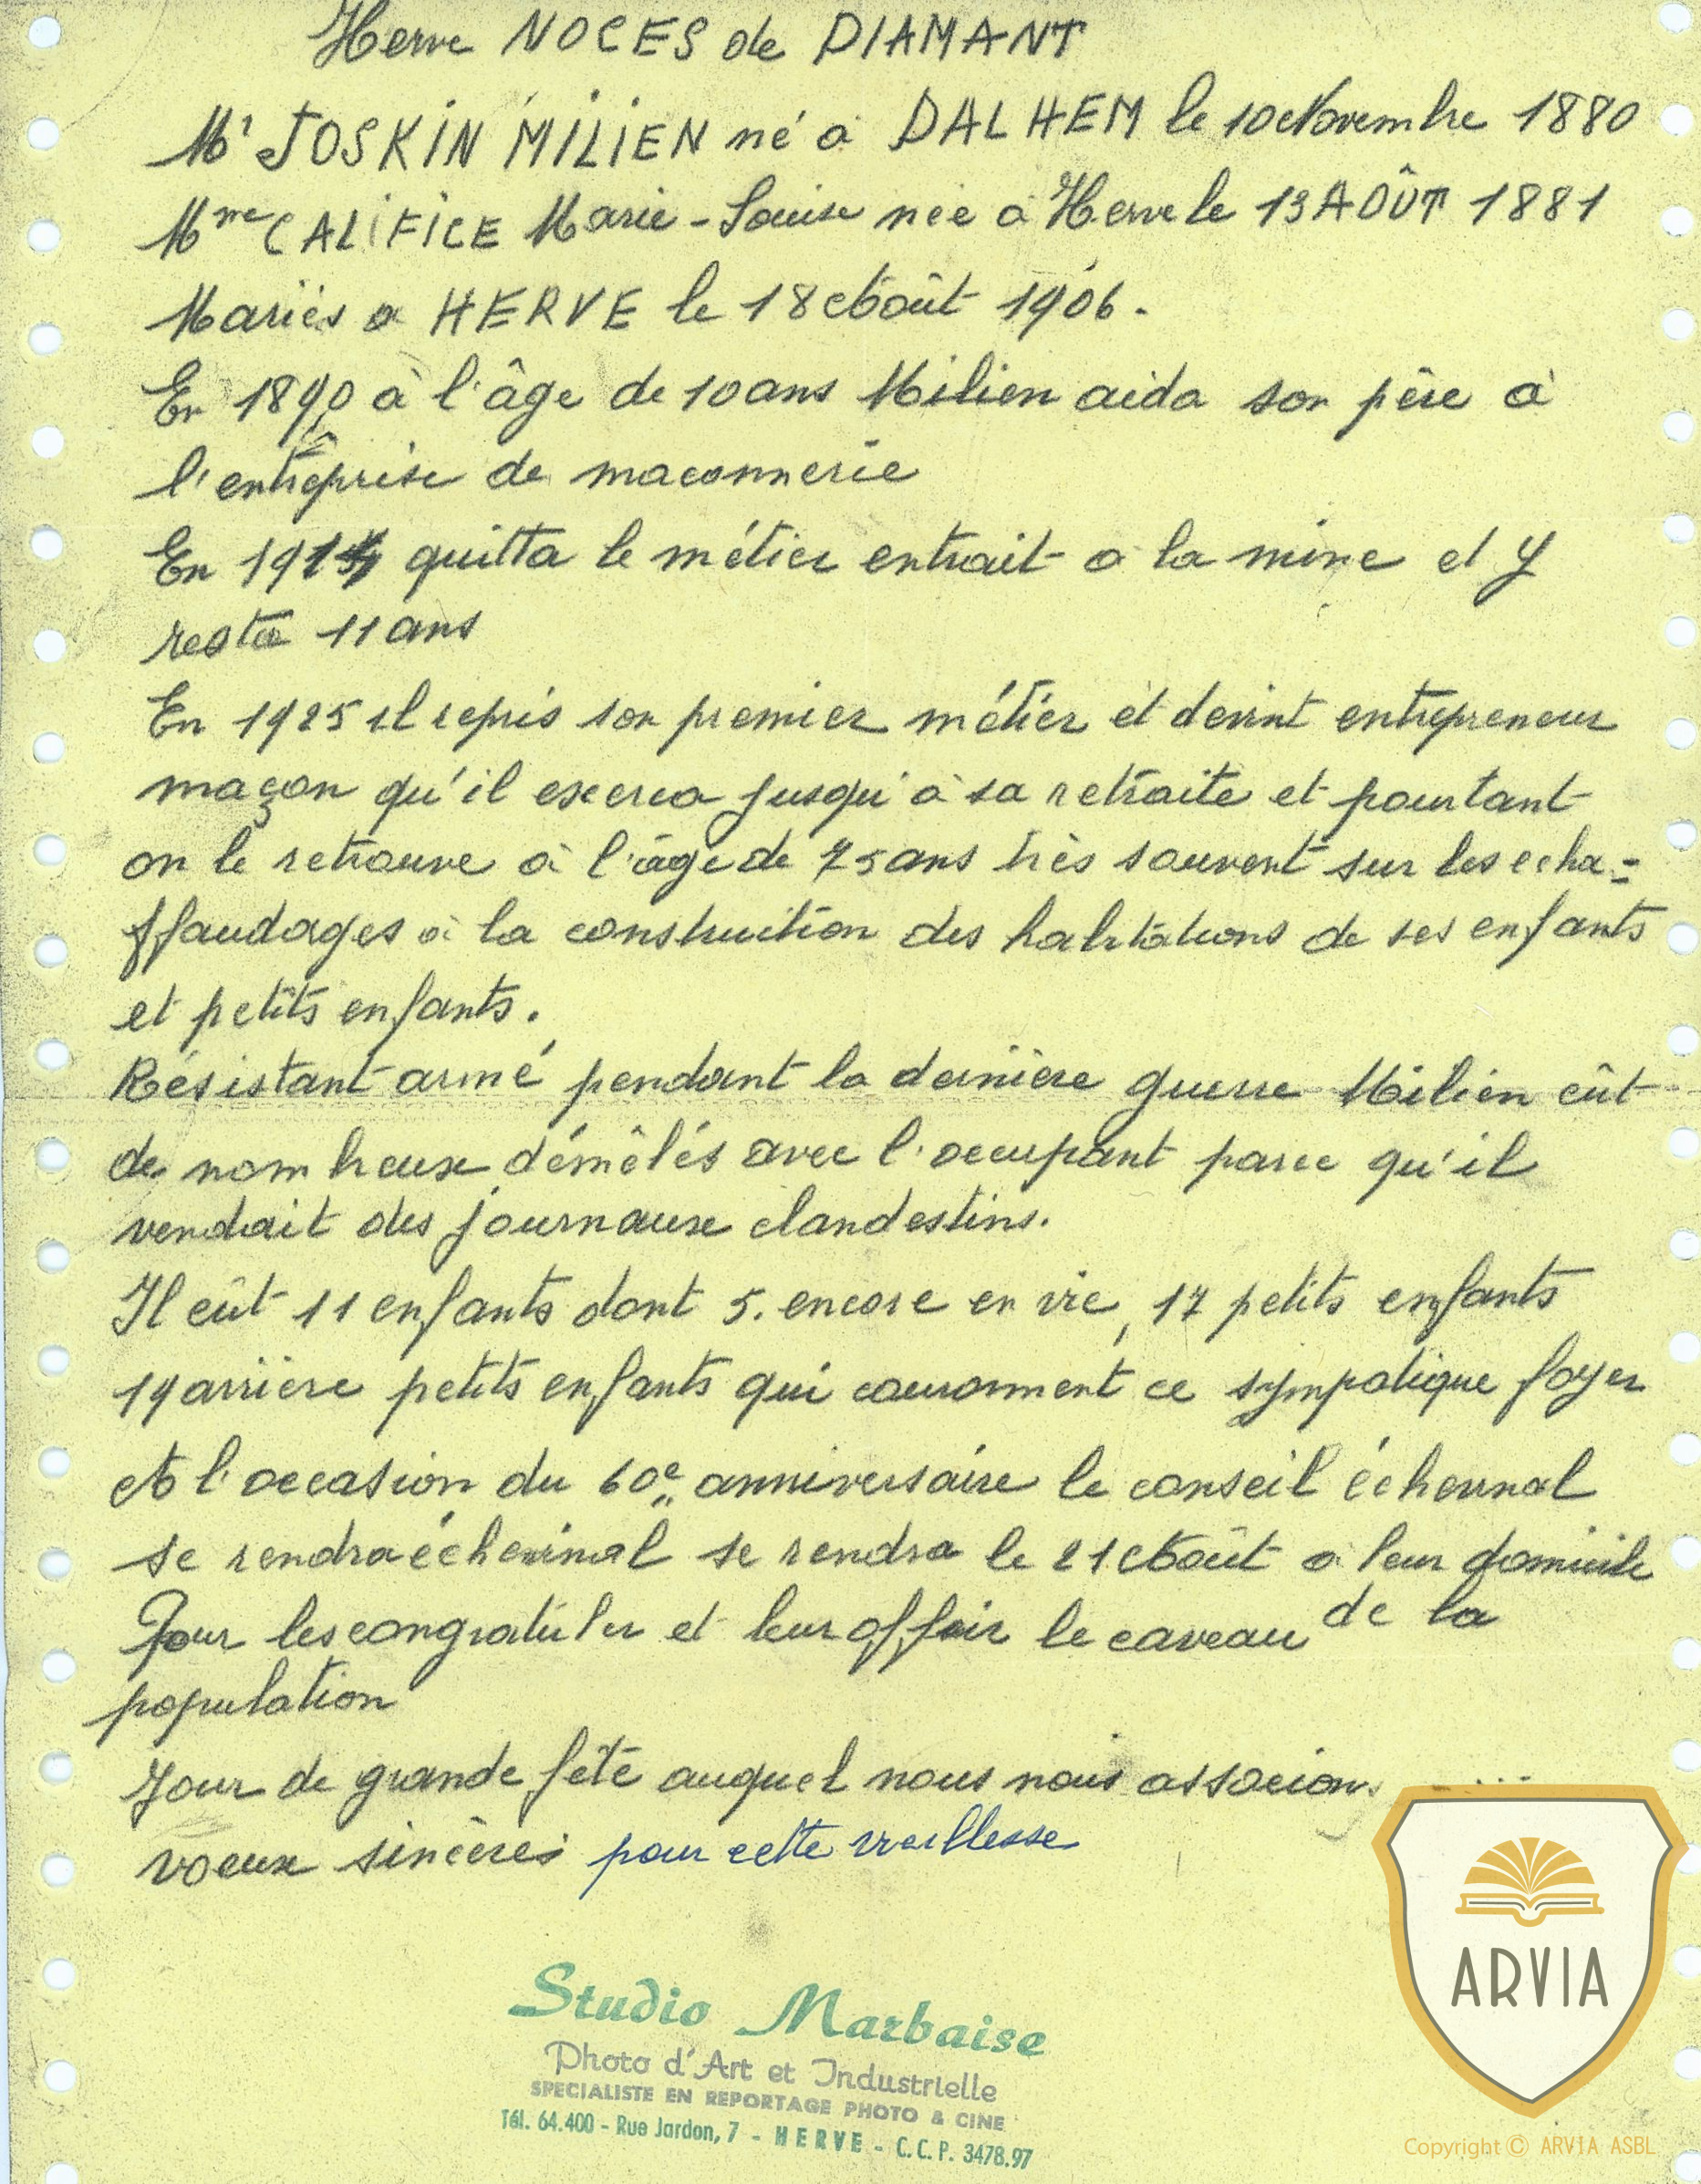 Herve NOCES de DIAMANT
Mr JOSKIN MILIEN né à DALHEM le 10 Novembre 1880
Mme CALIFICE Marie-Louise née à Herve le 13 AOÛT 1881
Mariés a HERVE le 18 Août 1906.
En 1890 à l'âge de 10 ans Milien aida son père à
l'entreprise de maconnerie
En 1914 quitta le métier entrait a la mine et y
resta 11 ans
En 1925 il repris son premier métier et devint entrepreneur
maçon qu'il exerca jusqu'à sa retraite et pourtant
on le retrouve à l'âge de 75 ans très souvent sur les echa=
ffaudages à la construction des habitations de ses enfants
et petits enfants.
Résistant armé pendant la dernière guerre Milien eût
de nombreux démêlés avec l'occupant parce qu'il
vendait des journaux clandestins.
Il eût 11 enfants dont 5. encore en vie, 17 petits enfants
19 arrière petits enfants qui couronnent ce sympatique foyer
A l'occasion du 60e anniversaire le conseil échevinal
se rendra échevinal se rendra le 21 Août a leur domicile
Pour les congratuler et leur offrir le caveau de la
population
Jour de grande fête auquel nous nous associons
voeux sincères pour cette vieillesse
Studio Marbaise
Photo d'Art et Industrielle
SPECIALISTE EN REPORTAGE PHOTO & CINE
Tél. 64.400 - Rue Jardon, 7 - HERVE - C.C.P. 3478.97
ARVIA
Copyright © ARVIA ASBL